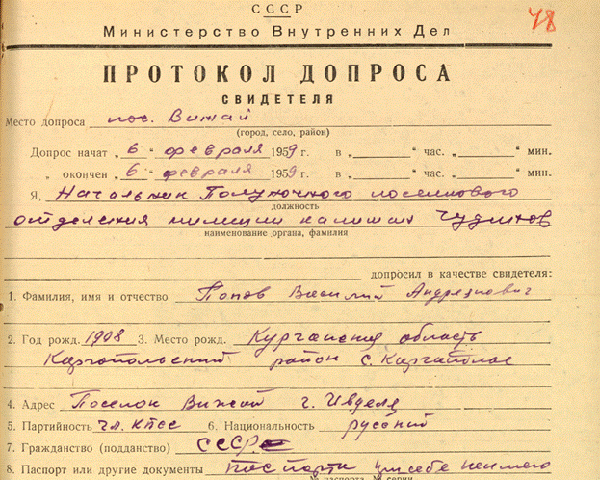 СССР
48
Министерство Внутренних Дел
ПРОТОКОЛ ДОПРОСА
СВИДЕТЕЛЯ
Место допроса пос. Вижай
(город, село, район)
Допрос начат „6“ февраля 1959 г. в „ “ час. „ “ мин.
„ окончен „6“ февраля 1959 г. в „ “ час. „ “ мин.
Я, Начальник Полуночного поселкового
должность
отделения милиции капитан Чудинов
наименование органа, фамилия
допросил в качестве свидетеля:
1. Фамилия, имя и отчество Попов Василий Андреянович
2. Год рожд. 1908 3. Место рожд. Курганская область
Каргопольский район с.
4. Адрес Поселок Вижай г. Ивделя
5. Партийность чл. КПСС 6. Национальность русский
7. Гражданство (подданство) СССР
8. Паспорт или другие документы паспорта при себе не имею
№ паспорта, № серии